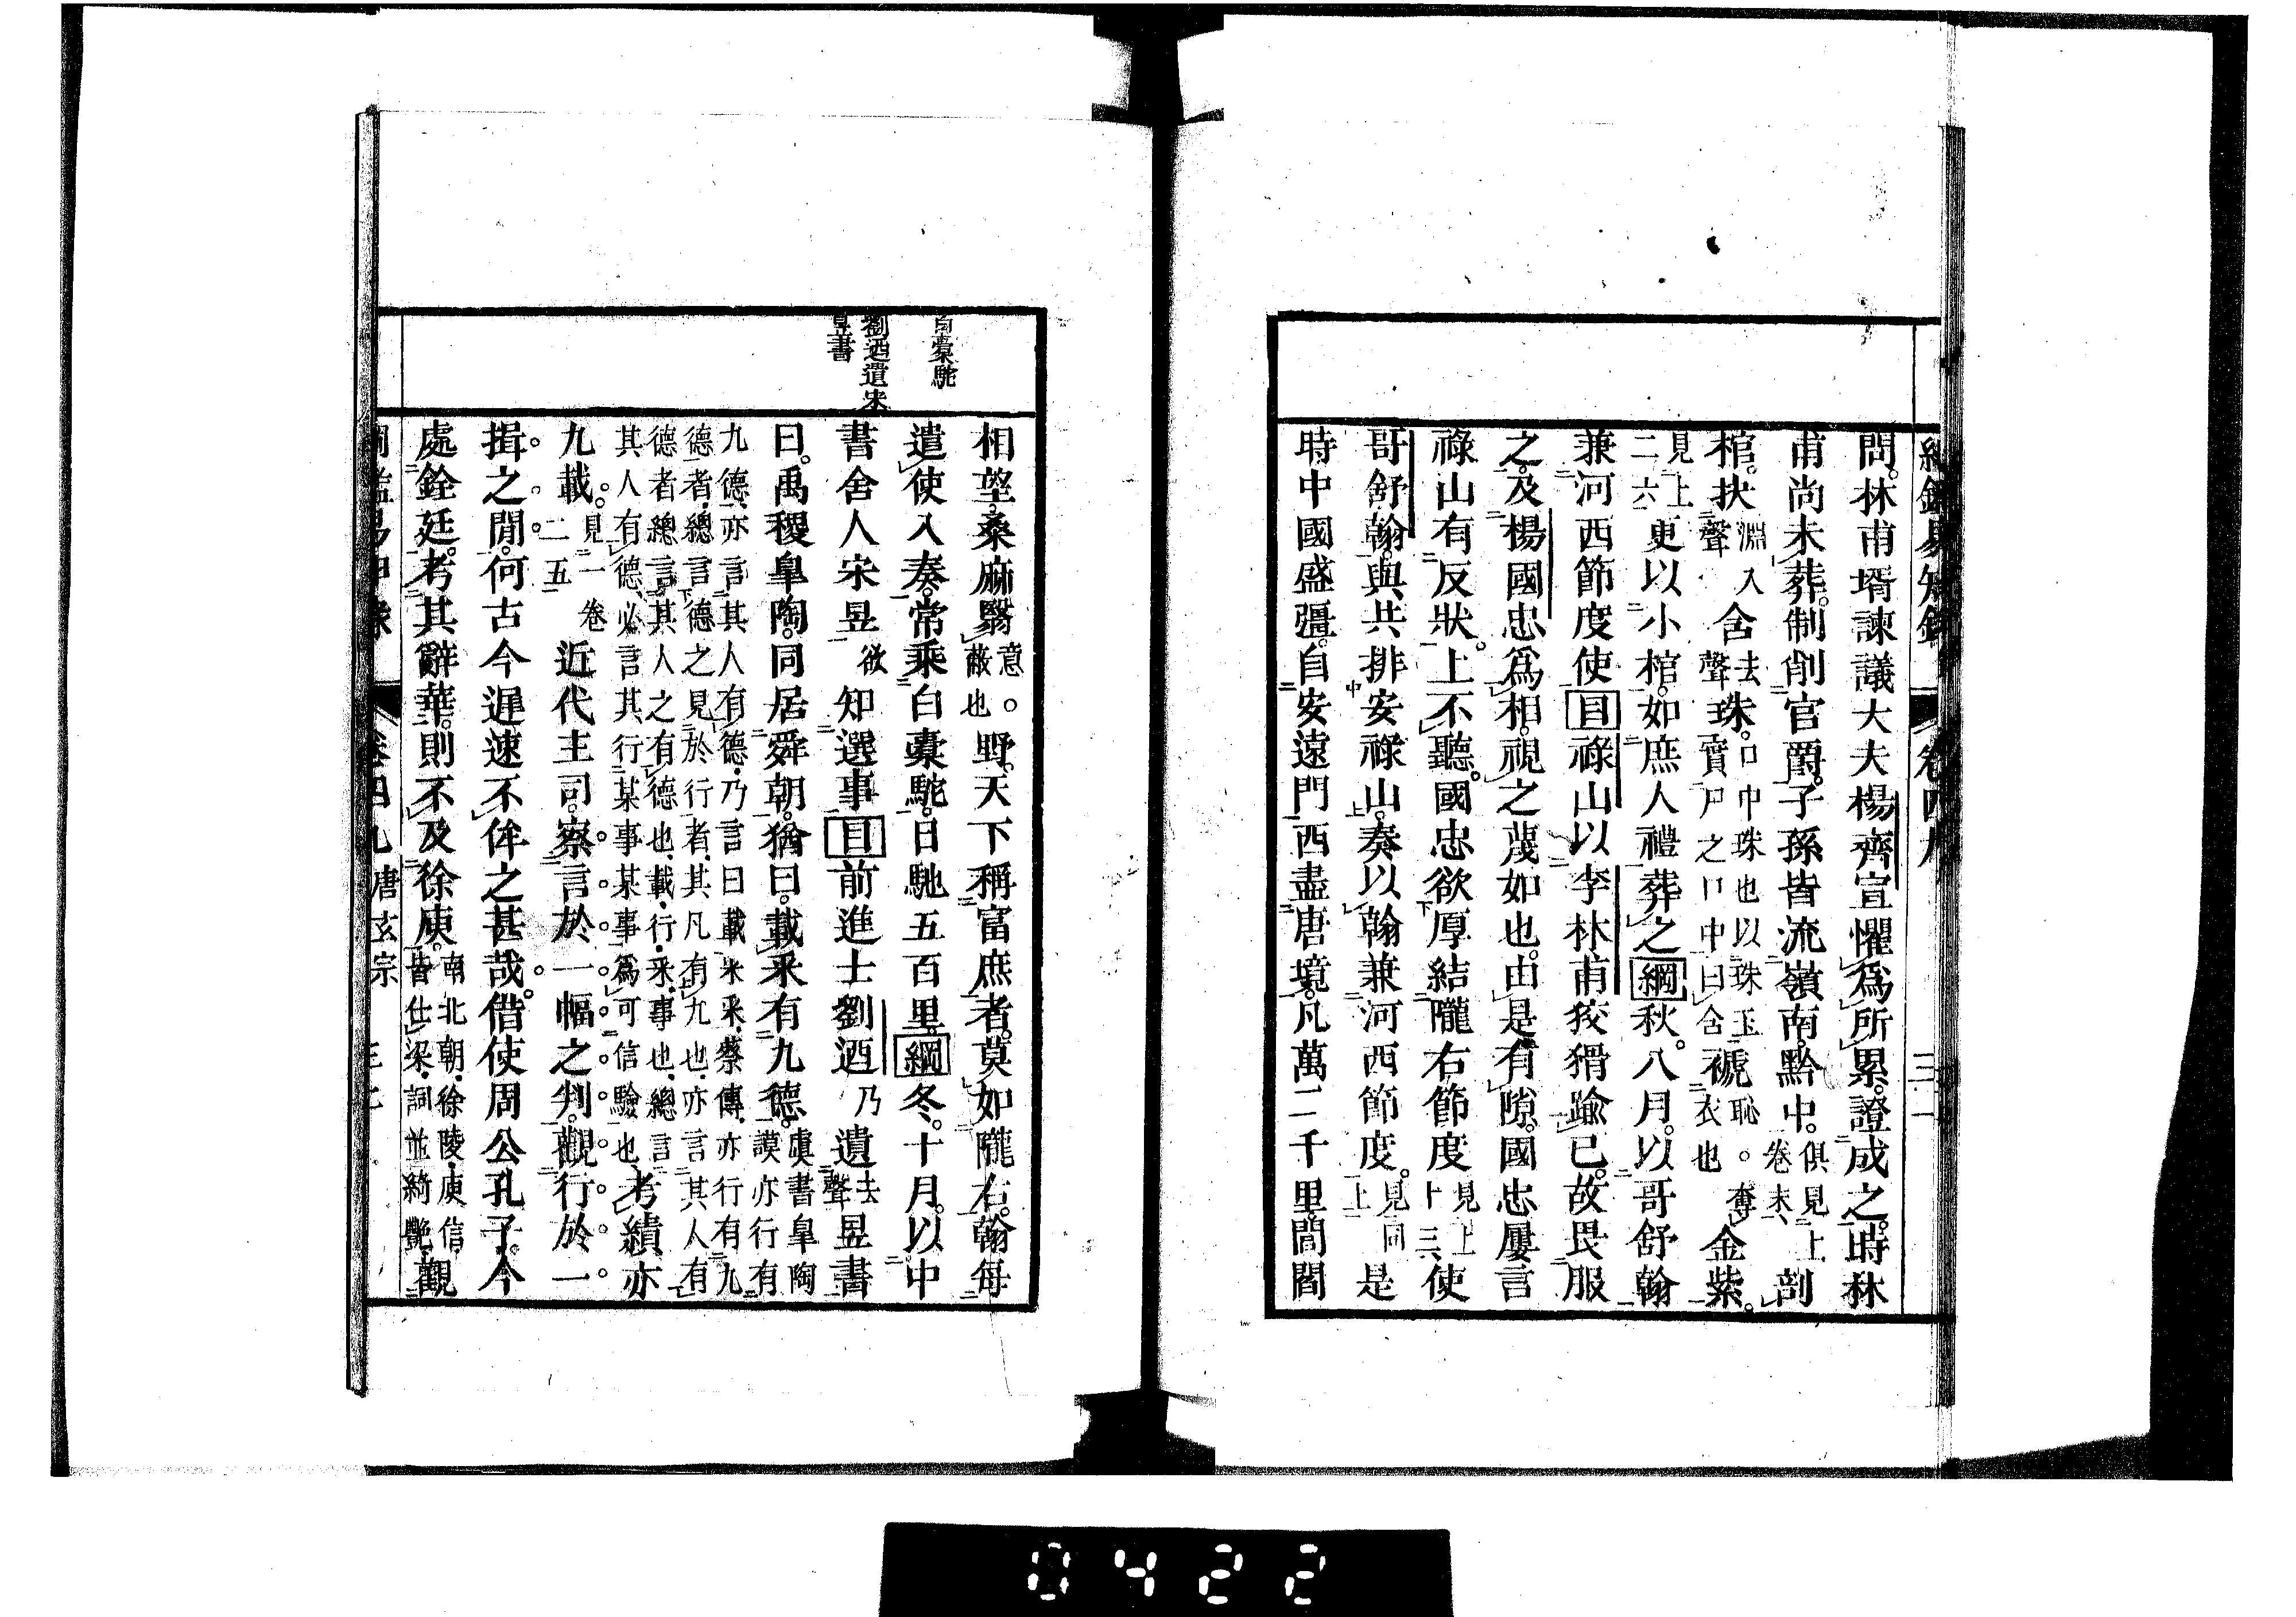 綱鑑易知錄 卷四九 三一
問。林甫壻諫議大夫楊齊宣懼爲所累。證成之。時林
甫尚未葬。制削官爵。子孫皆流嶺南。黔中。俱見上卷末、剖
棺。抉淵入聲含去聲珠。口中珠也以珠玉實尸之口中曰含褫恥。奪衣也金紫。
見上二六更以小棺。如庶人禮葬之綱秋。八月。以哥舒翰
兼河西節度使目祿山以李林甫狡猾踰已。故畏服
之。及楊國忠爲相。視之蔑如也。由是有隙。國忠屢言
祿山有反狀。上不聽。國忠欲厚結隴右節度見上十三、使
哥舒翰。與共排安祿山。奏以翰兼河西節度。見同上是
時中國盛彊。自安遠門西盡唐境。凡萬二千里。閭閻
相望。桑麻翳意。蔽也。野。天下稱富庶者。莫如隴右。翰每
遣使入奏。常乘白橐駝。日馳五百里綱冬。十月。以中
書舍人宋昱欲知選事目前進士劉迺乃遺去聲昱書
曰。禹稷皐陶。同居舜朝。猶曰。載采有九德。虞書皐陶謨亦行有
九德、亦言其人有德、乃言曰載采采、蔡傳、亦行有九
德者、總言德之見於行者、其凡有九也、亦言其人有
德者總言其人之有德也、載、行、采、事也、總言
其人有德、必言其行某事某事爲可信驗也考績亦
九載。見一卷二五近代主司。察言於一幅之判。觀行於一
揖之閒。何古今遲速不侔之甚哉。借使周公孔子。今
處銓廷。考其辭華。則不及徐庾。南北朝、徐陵、庾信、皆仕梁、詞並綺艷觀
卷四九唐玄宗
白橐駝
劉迺遺宋
昱書
0422